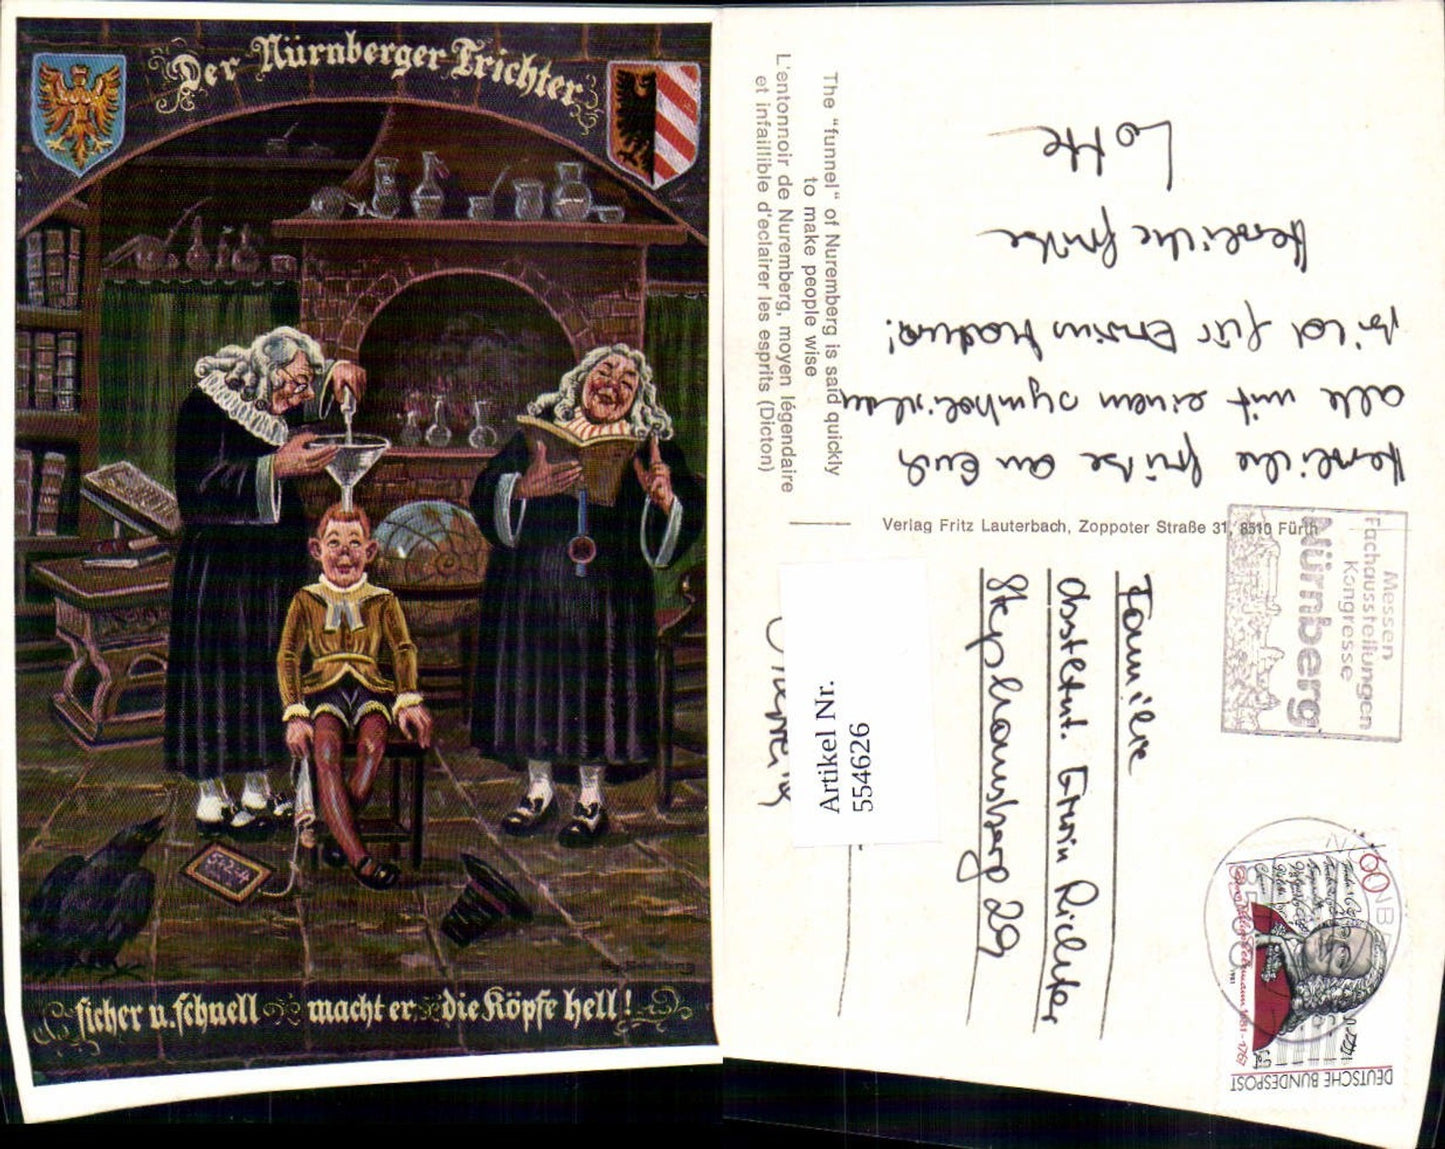 Der Nürnberger Trichter
5+2=4
sicher u. schnell macht er die Köpfe hell!
The "funnel" of Nuremberg is said quickly
to make people wise
L'entonnoir de Nuremberg, moyen légendaire
et infaillible d'eclairer les esprits (Dicton)
Herzliche Grüße an Euch
alle mit einem symbolischen
Bild für Erwins
Herzliche Grüße
Lotte
Verlag Fritz Lauterbach, Zoppoter Straße 31, 8510 Fürth
Messen
Fachausstellungen
Kongresse
Nürnberg
Familie
Obstltnt. Erwin Richter
Stephansberg 29
Artikel Nr.
554626
60
Georg Philipp Telemann 1681-1767
1981
DEUTSCHE BUNDESPOST